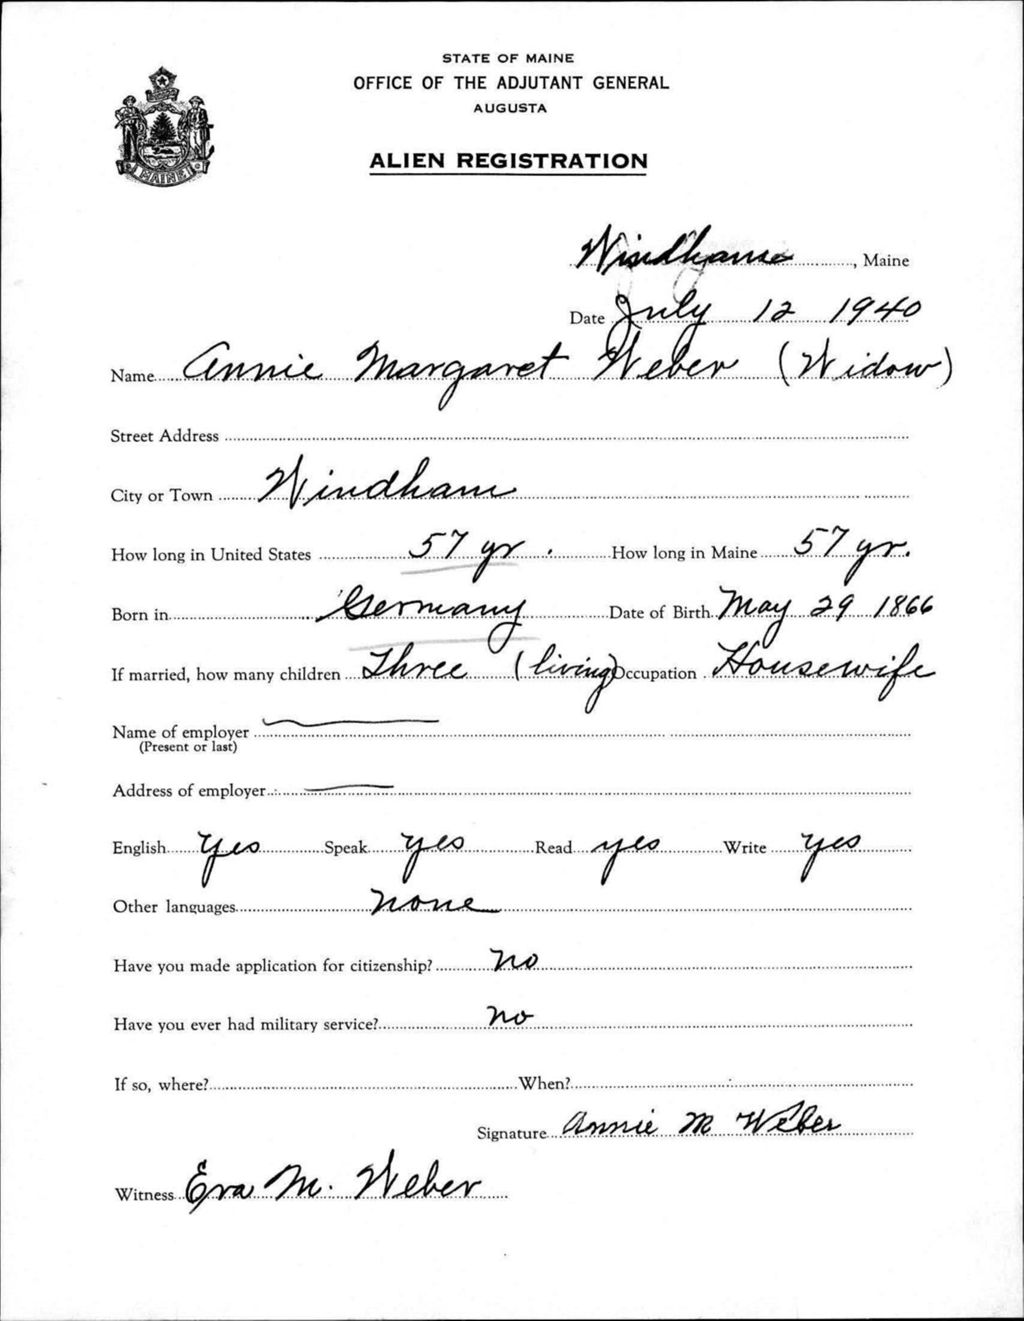 STATE OF MAINE
OFFICE OF THE ADJUTANT GENERAL
AUGUSTA
ALIEN REGISTRATION
MAINE
Windham, Maine
Date July 12 1940
Name Annie Margaret Weber (Widow)
Street Address
City or Town Windham
How long in United States 57 yr. How long in Maine 57 yr.
Born in Germany Date of Birth May 29 1866
If married, how many children Three (living) Occupation Housewife
Name of employer
(Present or last)
Address of employer
English Yes Speak yes Read yes Write yes
Other languages none
Have you made application for citizenship? no
Have you ever had military service? no
If so, where? When?
Signature Annie M Weber
Witness Eva M. Weber